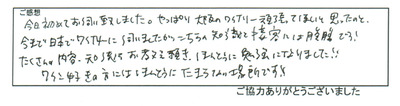 ご感想
今日初めてお伺い致しました。やっぱり大阪のワイナリー頑張ってほしいと思ったのと、
今まで日本でワイナリーに伺いましたがこちらの知識と接客には脱帽です!
たくさんの内容、知識をお教え頂き、ほんとうに勉強になりました!!
ワイン好きの方にはほんとうにたまらない場所です!!
ご協力ありがとうございました